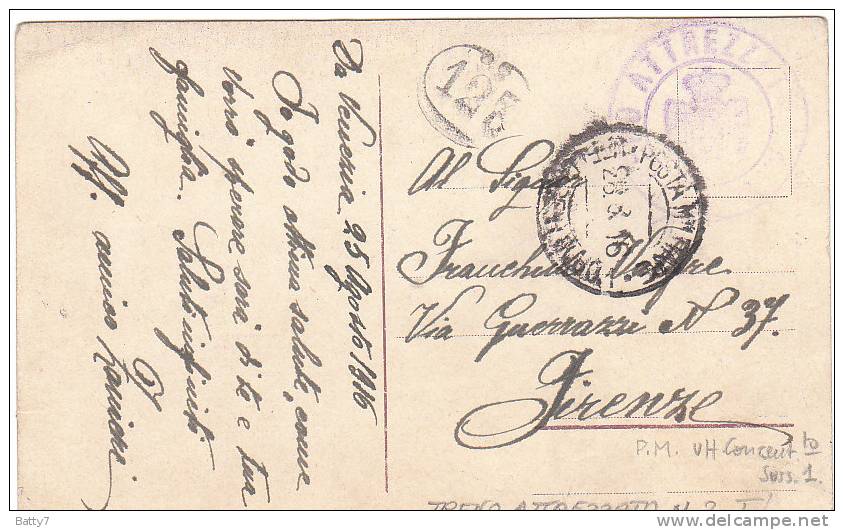 Da Venezia 25 Agosto 1916
Io godo ottima salute, come
verrò sperare sarà di te e tua
famiglia. Saluti infiniti
Aff. amico
125
ATTREZZ
POSTA MILITARE
28 8 16
Al Signor
Via Guerrazzi N 37.
Firenze
P.M. VII Concent to
Suss. 1.
TRENO ATTREZZATO N. 2
Batty7
www.delcampe.net